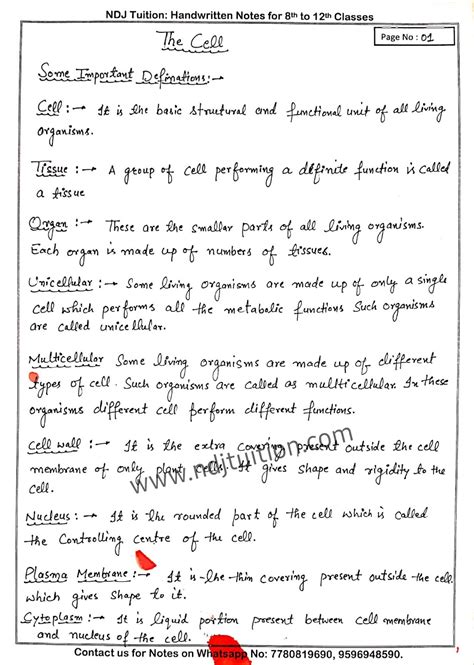 NDJ Tuition: Handwritten Notes for 8th to 12th Classes
Page No : 01
The Cell
Some Important Definations : -
Cell : → It is the basic structural and functional unit of all living
organisms.
Tissue : → A group of cell performing a definite function is called
a tissue
Organ : → These are the smaller parts of all living organisms.
Each organ is made up of numbers of tissues.
Unicellular : → Some living organisms are made up of only a single
cell which performs all the metabolic functions Such organisms
are called unicellular.
Multicellular Some living organisms are made up of different
types of cell. Such organisms are called as multticellular. In these
organisms different cell perform different functions.
Cell wall : → It is the extra covering present outside the cell
membrane of only plant cells. It gives shape and rigidity to the
cell.
www.ndjtuition.com
Nucleus : → It is the rounded part of the cell which is called
the Controlling centre of the cell.
Plasma Membrane : → It is the thin covering present outside the cell
which gives shape to it.
Cytoplasm : → It is liquid portion present between cell membrane
and nucleus of the cell.
Contact us for Notes on Whatsapp No: 7780819690, 9596948590.